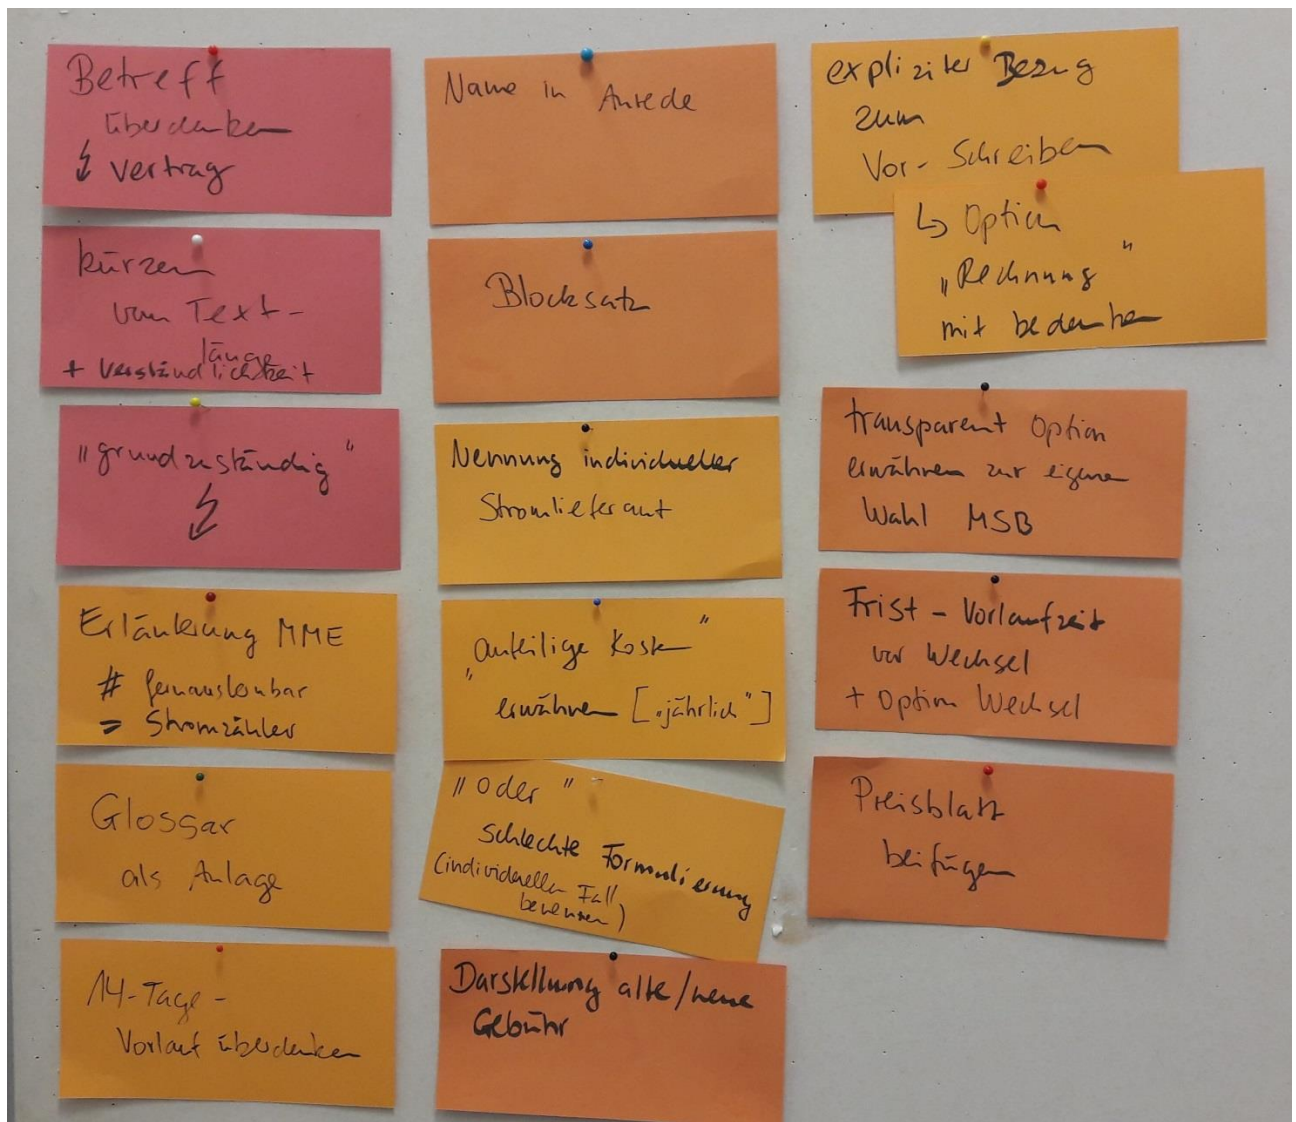 Betreff
überdenken
↯ Vertrag
kürzen
von Text-
länge
+ Verständlichkeit
"grundzuständig"
↯
Erläuterung MME
# fernauslesbar
= Stromzähler
Glossar
als Anlage
14-Tage-
Vorlauf überdenken
Name in Anrede
Blocksatz
Nennung individueller
Stromlieferant
"anteilige Kosten"
erwähnen ["jährlich"]
"oder"
schlechte Formulierung
(individuellen Fall
benennen)
Darstellung alte/neue
Gebühr
expliziter Bezug
zum
Vor-Schreiben
↳ Option
"Rechnung"
mit bedenken
transparent Option
erwähnen zur eigenen
Wahl MSB
Frist - Vorlaufzeit
vor Wechsel
+ Option Wechsel
Preisblatt
beifügen